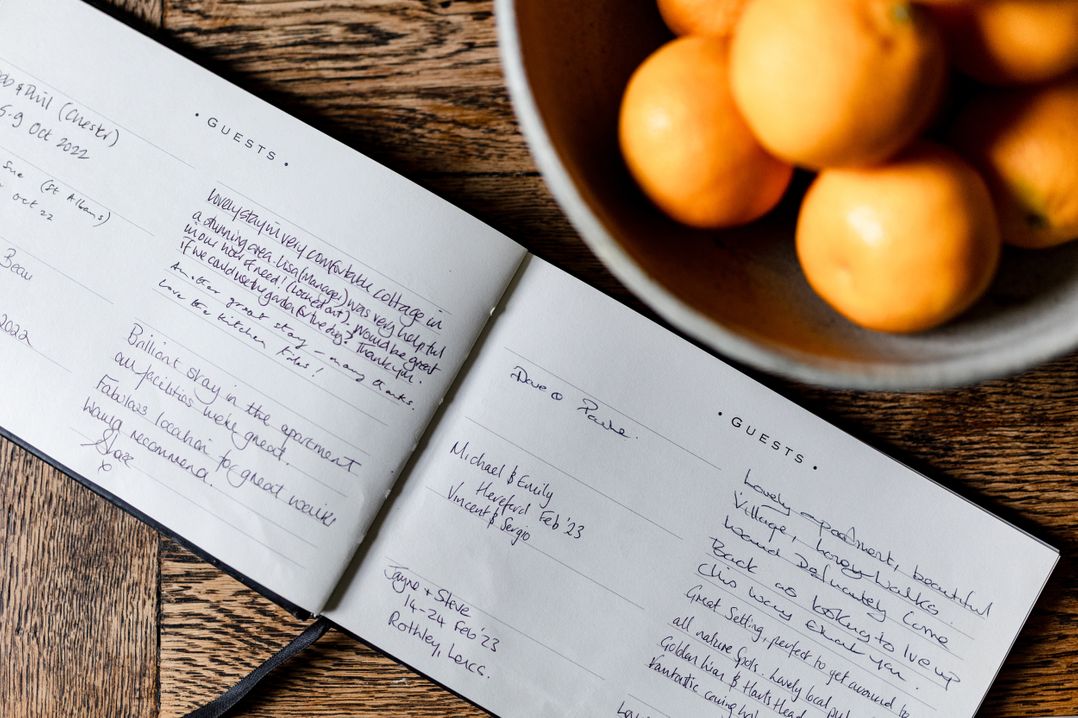 & Phil (Chester)
5-9 Oct 2022
Sue (St Albans)
Oct 22
Beau
2022
• GUESTS •
Lovely stay in very comfortable cottage in
a stunning area. Lisa (manager) was very helpful
in our hour of need! (Locked out). Would be great
if we could use the garden for the dog? Thank you.
Another great stay - many thanks.
Love the kitchen
Brilliant stay in the apartment
all facilities were great.
Fabulous location for great walks
Would recommend.
x
Dave &
Michael & Emily
Hereford Feb '23
Vincent & Sergio
Jayne + Steve
14-24 Feb '23
Rothley, Leics.
• GUESTS •
Lovely apartment, beautiful
Village, lovely walks.
Would Definately come
Back as looking to live up
this way Thank you.
Great Setting, perfect to get around to
all nature spots. Lovely local pub
Golden Lion & Harts Head
Fantastic